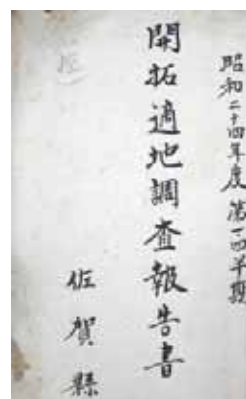 昭和二十四年度第一四半期
開拓適地調査報告書
佐賀縣